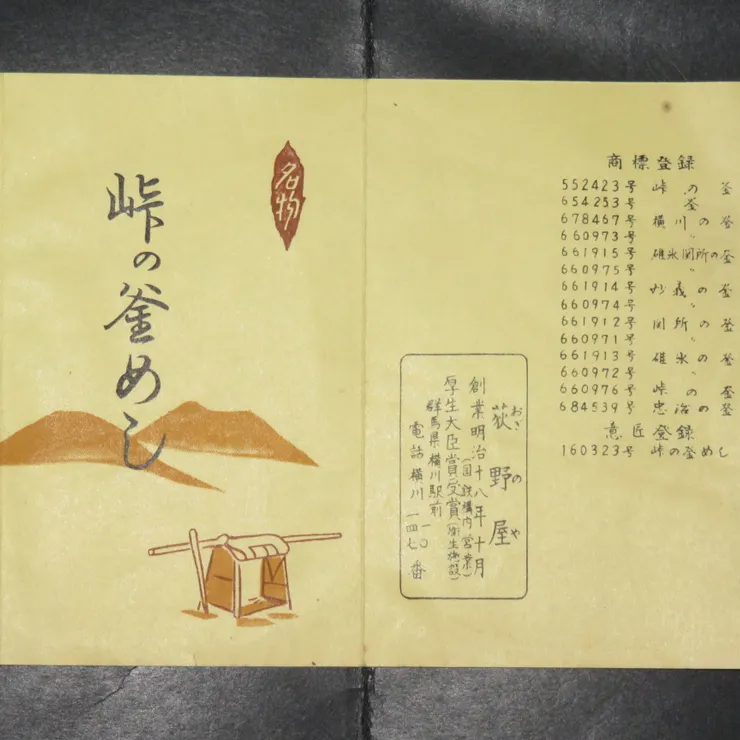 名物
峠の釜めし
商標登録
552423号 峠の釜
654253号 釜
678467号 横川の釜
660973号 〃
661915号 碓氷関所の釜
660975号 〃
661914号 妙義の釜
660974号 〃
661912号 関所の釜
660971号 〃
661913号 碓氷の釜
660972号 〃
660976号 峠の釜
684539号 忠治の釜
意匠登録
160323号 峠の釜めし
荻野屋
おぎのや
創業明治十八年十月
(国鉄構内営業)
厚生大臣賞受賞(衛生施設)
群馬県横川駅前
電話横川 一一〇 一四七 番